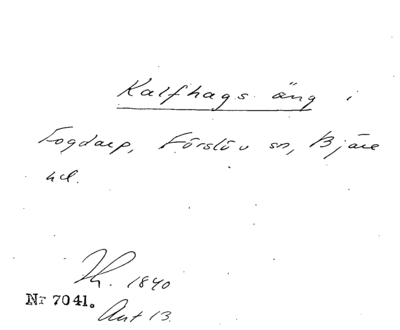 Kalfhags äng i
Fogdarp, Förslöv sn, Bjäre
hd.
Th. 1840
Nr 7041.
Akt 13.